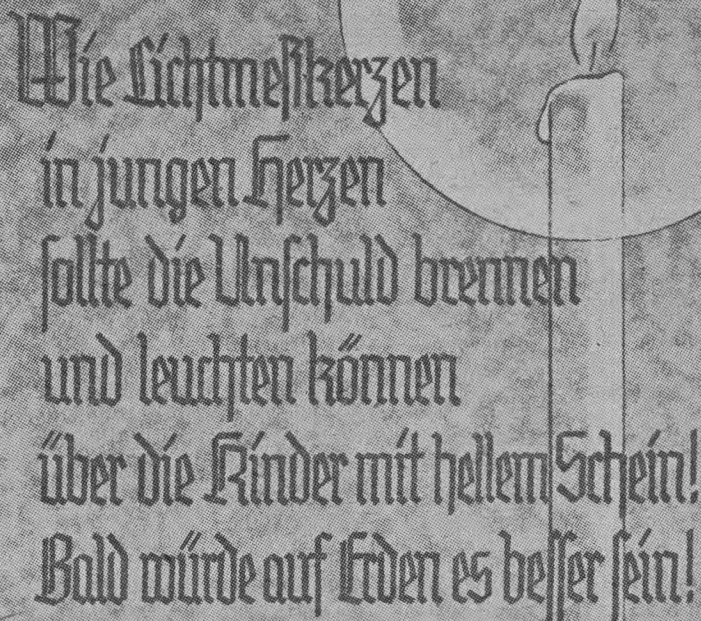 Wie Lichtmeßkerzen
in jungen Herzen
sollte die Unschuld brennen
und leuchten können
über die Kinder mit hellem Schein!
Bald würde auf Erden es besser sein!